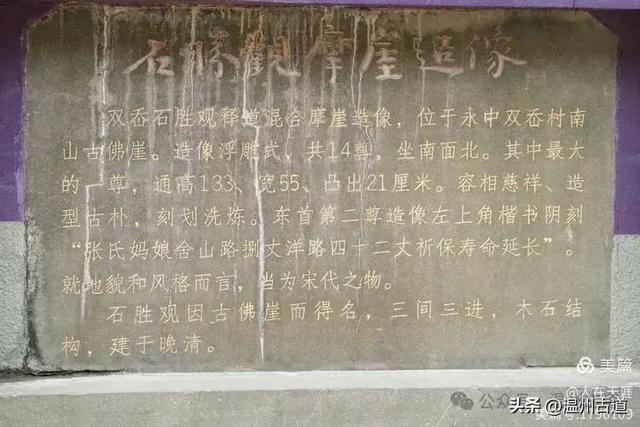 石勝觀摩崖造像
双岙石胜观释道混合摩崖造像，位于永中双岙村南
山古佛崖。造像浮雕式，共14尊，坐南面北。其中最大
的一尊，通高133、宽55、凸出21厘米。容相慈祥、造
型古朴，刻划洗炼。东首第二尊造像左上角楷书阴刻
“张氏妈娘舍山路捌丈洋路四十二丈祈保寿命延长”。
就地貌和风格而言，当为宋代之物。
石胜观因古佛崖而得名，三间三进，木石结
构，建于晚清。
美篇
@人在天涯
公众
头条 @温州古道
美篇号:1796109